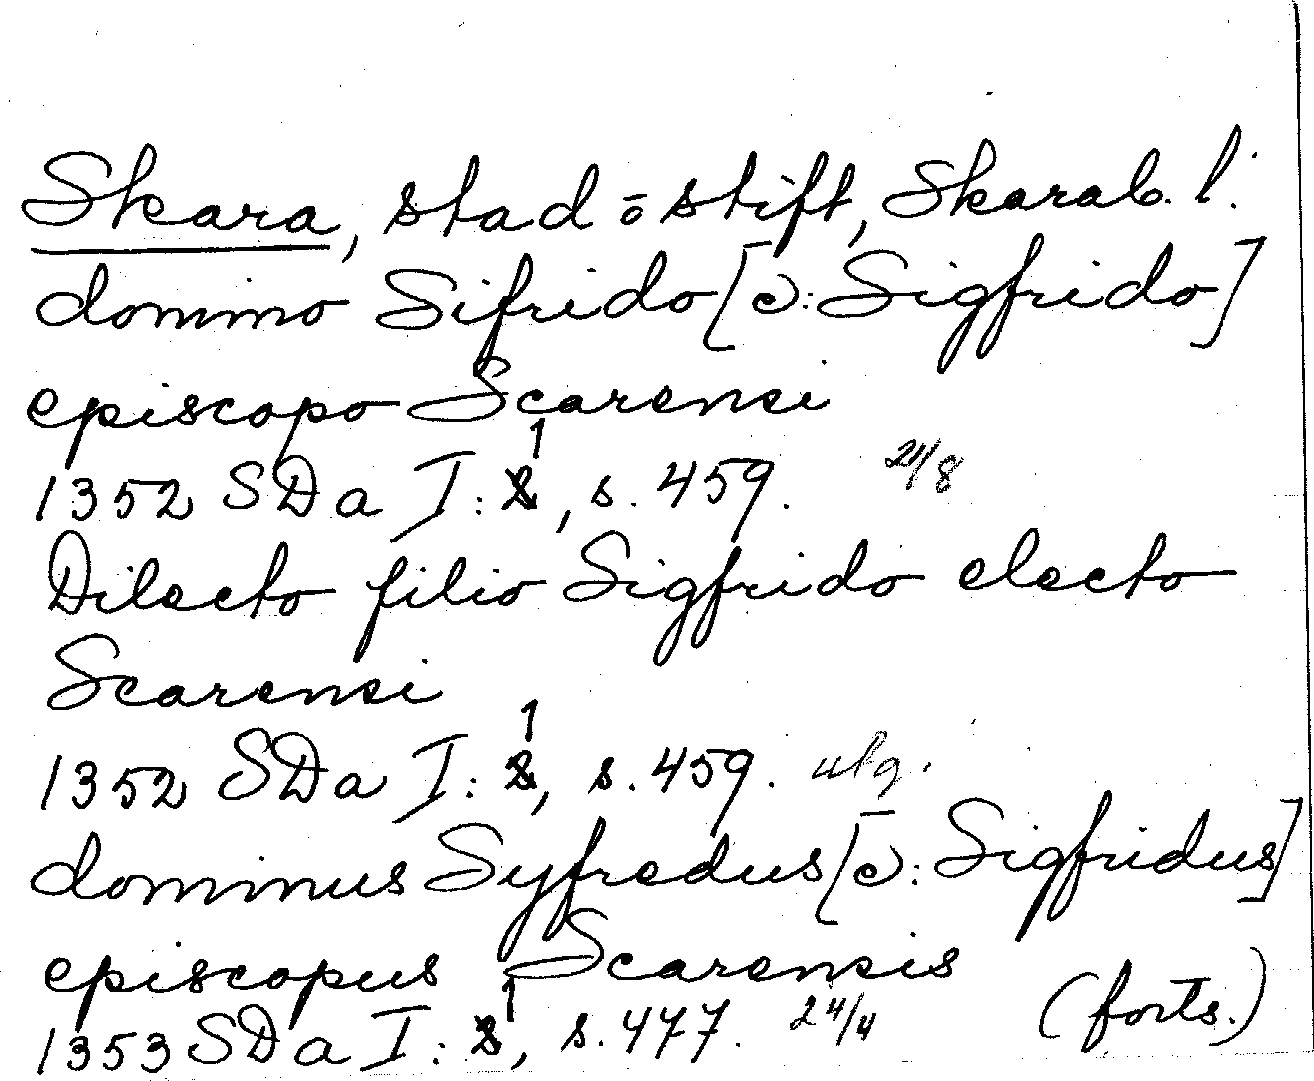 Skara, stad o stift, Skarab. l.
domino Sifrido [ɔ: Sigfrido]
episcopo Scarensi
1352 SDa I: 1, s. 459. 24/8
Dilecto filio Sigfrido electo
Scarensi
1352 SDa I: 1, s. 459. utg.
dominus Syfredus [ɔ: Sigfridus]
episcopus Scarensis
1353 SDa I: 1, s. 477. 24/4 (forts.)